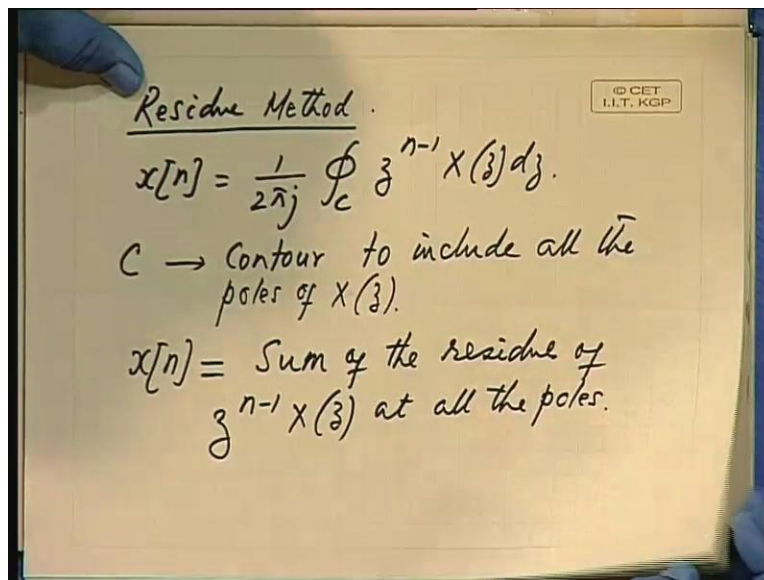 Residue Method.
© CET
I.I.T. KGP
x[n] = 1/2πj ∮_C z^{n-1} X(z) dz.
C → Contour to include all the
poles of X(z).
x[n] = Sum of the residue of
z^{n-1} X(z) at all the poles.